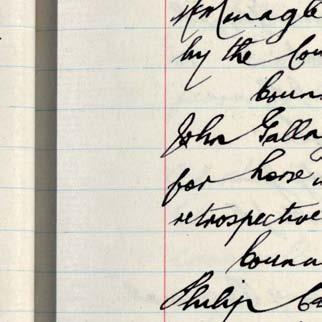 by the Cou
Coun
John Galla
for horse
retrospective
Counc
Philip Ca